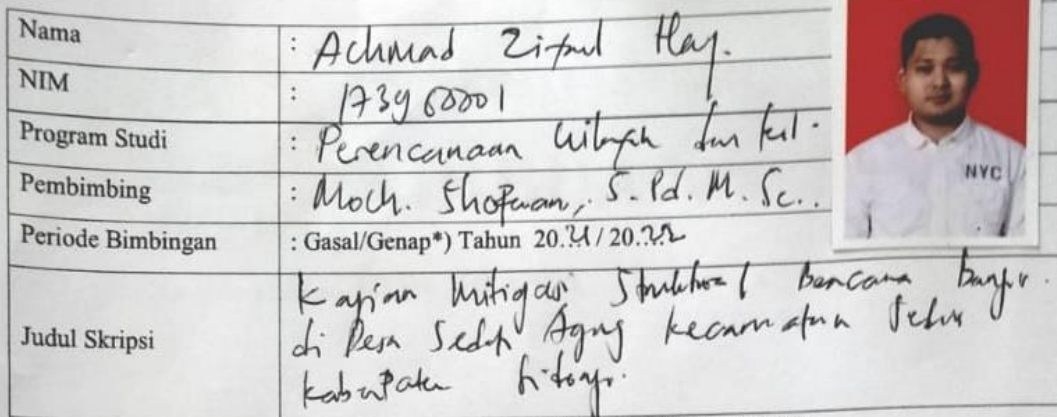 Nama : Achmad
NIM : 173960001
Program Studi : Perencanaan Wilayah dan
Pembimbing : Moch. Shofwan, S.Pd. M.Sc..
Periode Bimbingan : Gasal/Genap*) Tahun 20.21/20.22
NYC
Judul Skripsi : Kajian Mitigasi Struktural Bencana Banjir.
di Desa Kecamatan
Kabupaten